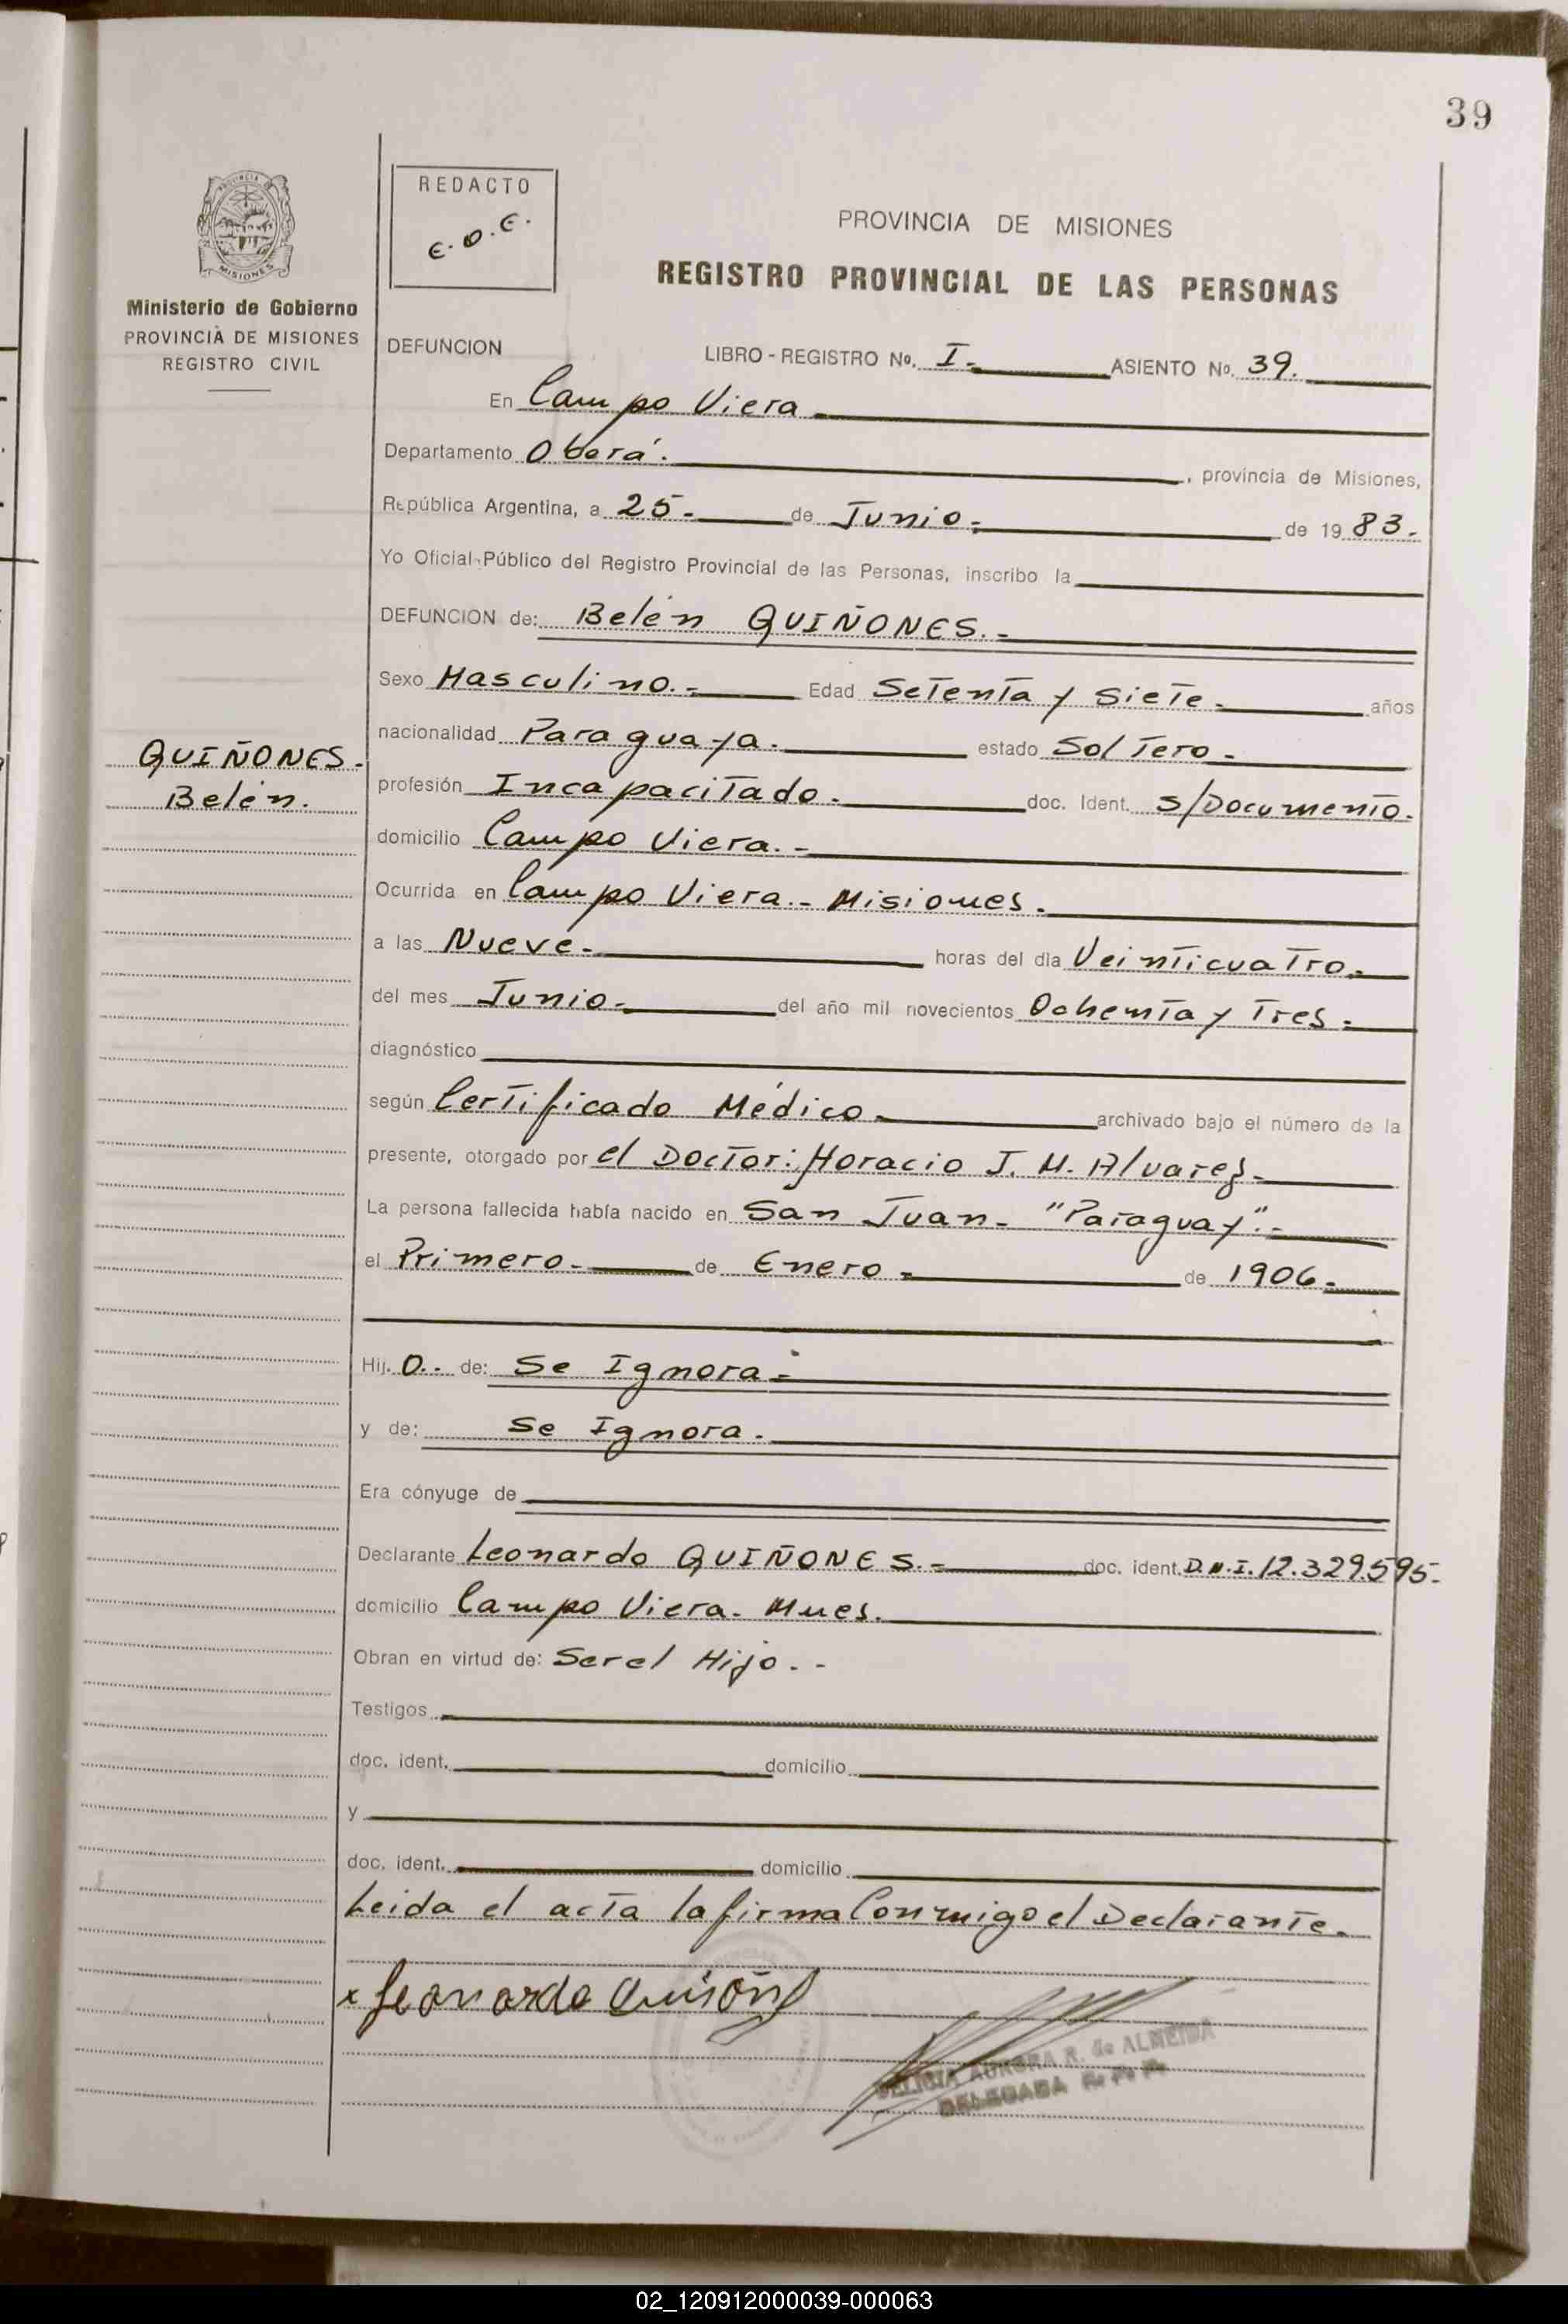 39
REDACTO
E.O.E.
PROVINCIA DE
MISIONES
Ministerio de Gobierno
PROVINCIA DE MISIONES
REGISTRO CIVIL
PROVINCIA DE MISIONES
REGISTRO PROVINCIAL DE LAS PERSONAS
DEFUNCION LIBRO - REGISTRO Nº. I.- ASIENTO Nº. 39.
En Campo Viera
Departamento Oberá. , provincia de Misiones,
República Argentina, a 25.- de Junio.- de 19 83.-
Yo Oficial Público del Registro Provincial de las Personas, inscribo la
DEFUNCION de: Belén QUIÑONES.-
Sexo Masculino.- Edad Setenta y Siete.- años
nacionalidad Paraguaya.- estado Soltero.-
QUIÑONES.-
Belén.
profesión Incapacitado.- doc. Ident. S/Documento.
domicilio Campo Viera.-
Ocurrida en Campo Viera.- Misiones.
a las Nueve.- horas del día Veinticuatro.-
del mes Junio.- del año mil novecientos Ochenta y Tres.-
diagnóstico
según Certificado Médico.- archivado bajo el número de la
presente, otorgado por el Doctor: Horacio J. M. Alvarez.-
La persona fallecida había nacido en San Juan.- "Paraguay".-
el Primero.- de Enero.- de 1906.-
Hij.o.- de: Se Ignora.-
y de: Se Ignora.-
Era cónyuge de
Declarante Leonardo QUIÑONES.- doc. ident. D.N.I. 12.329.595.-
domicilio Campo Viera.- Mnes.
Obran en virtud de: Ser el Hijo.-
Testigos
doc. ident. domicilio
y
doc. ident. domicilio
Leida el acta la firma Conmigo el Declarante.-
x Leonardo Quiñones
DELICIA AURORA R. de ALMEIDA
DELEGADA R. P. P.
02_120912000039-000063